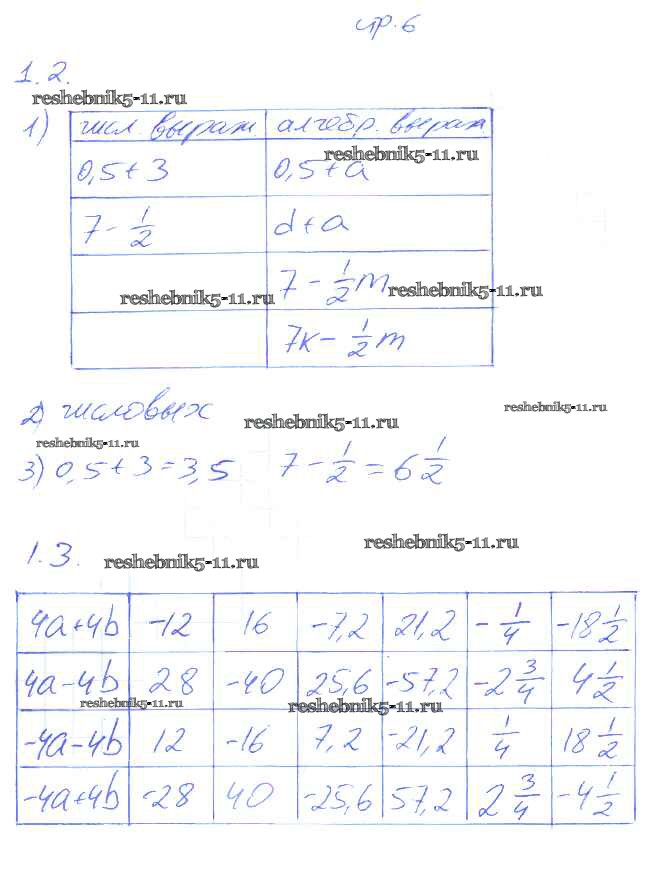 стр. 6
1.2.
reshebnik5-11.ru
1) числ. выраж. алгебр. выраж
reshebnik5-11.ru
0,5+3 0,5+a
7 - 1/2 d+a
7 - 1/2 m
reshebnik5-11.ru reshebnik5-11.ru
7k - 1/2 m
2) числовых
reshebnik5-11.ru reshebnik5-11.ru
reshebnik5-11.ru
3) 0,5+3=3,5 7 - 1/2 = 6 1/2
1.3.
reshebnik5-11.ru reshebnik5-11.ru
4a+4b -12 16 -7,2 21,2 - 1/4 -18 1/2
4a-4b 28 -40 25,6 -57,2 -2 3/4 4 1/2
reshebnik5-11.ru reshebnik5-11.ru
-4a-4b 12 -16 7,2 -21,2 1/4 18 1/2
-4a+4b -28 40 -25,6 57,2 2 3/4 -4 1/2